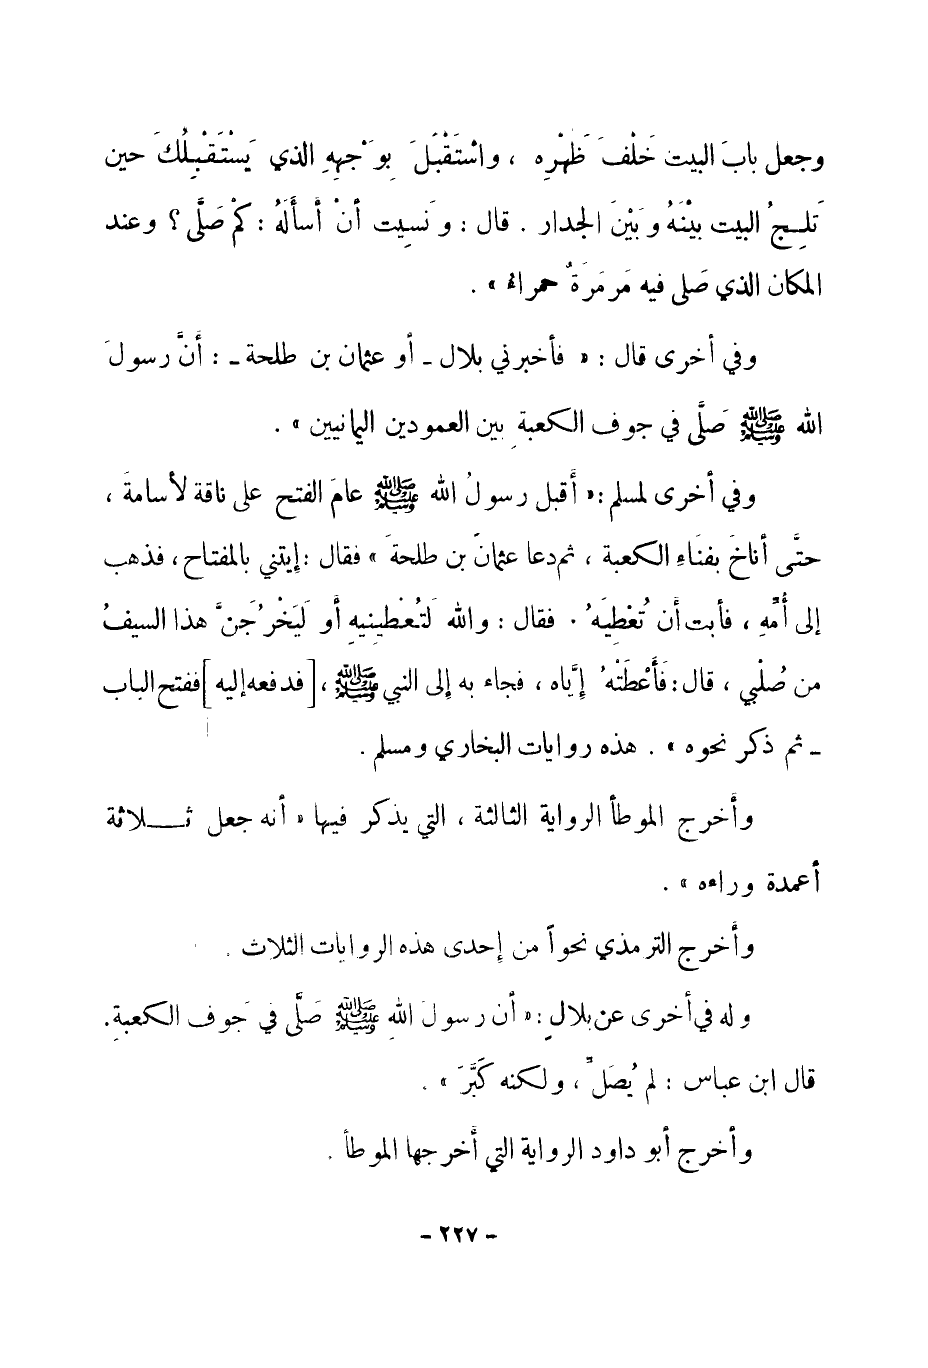 وجعل بابَ البيت خَلْفَ ظَهْرِه ، واسْتَقْبَلَ بِوَجْهِهِ الذي يَسْتَقْبِلُكَ حين
تَلِجُ البيت بيْنَهُ وَبَيْنَ الجدار . قال : وَنَسِيت أنْ أسأَلَهُ : كَمْ صَلَّى ؟ وعند
المكان الذي صَلى فيه مَرمَرَةٌ حمراءُ » .
وفي أخرى قال : « فأخبرني بلال ـ أو عثمان بن طلحة ـ : أنَّ رسولَ
الله ﷺ صَلَّى في جوف الكعبةِ بين العمودين اليمانيين » .
وفي أخرى لمسلم : « أقبل رسولُ الله ﷺ عامَ الفتح على ناقة لأسامةَ ،
حتَّى أناخَ بفنَاءِ الكعبة ، ثم دعا عثمانَ بن طلحةَ » فقال : إيتني بالمفتاح ، فذهب
إلى أُمِّهِ ، فأبت أن تُعْطِيَهُ . فقال : والله لَتُعْطِينِيهِ أو لَيَخْرُجَنَّ هذا السيفُ
من صُلْبي ، قال : فَأَعْطَتْهُ إيَّاه ، فجاء به إلى النبي ﷺ ، [فدفعه إليه] ففتح الباب
ـ ثم ذكر نحوه » . هذه روايات البخاري ومسلم .
وأخرج الموطأ الرواية الثالثة ، التي يذكر فيها « أنه جعل ثـــلاثة
أعمدة وراءه » .
وأخرج الترمذي نحواً من إحدى هذه الروايات الثلاث .
وله في أخرى عن بلالٍ : « أن رسولَ اللهِ ﷺ صَلَّى في جَوف الكعبةِ .
قال ابن عباس : لم يُصَلِّ ، ولكنه كَبَّرَ » .
وأخرج أبو داود الرواية التي أخرجها الموطأ .
- ٢٢٧ -